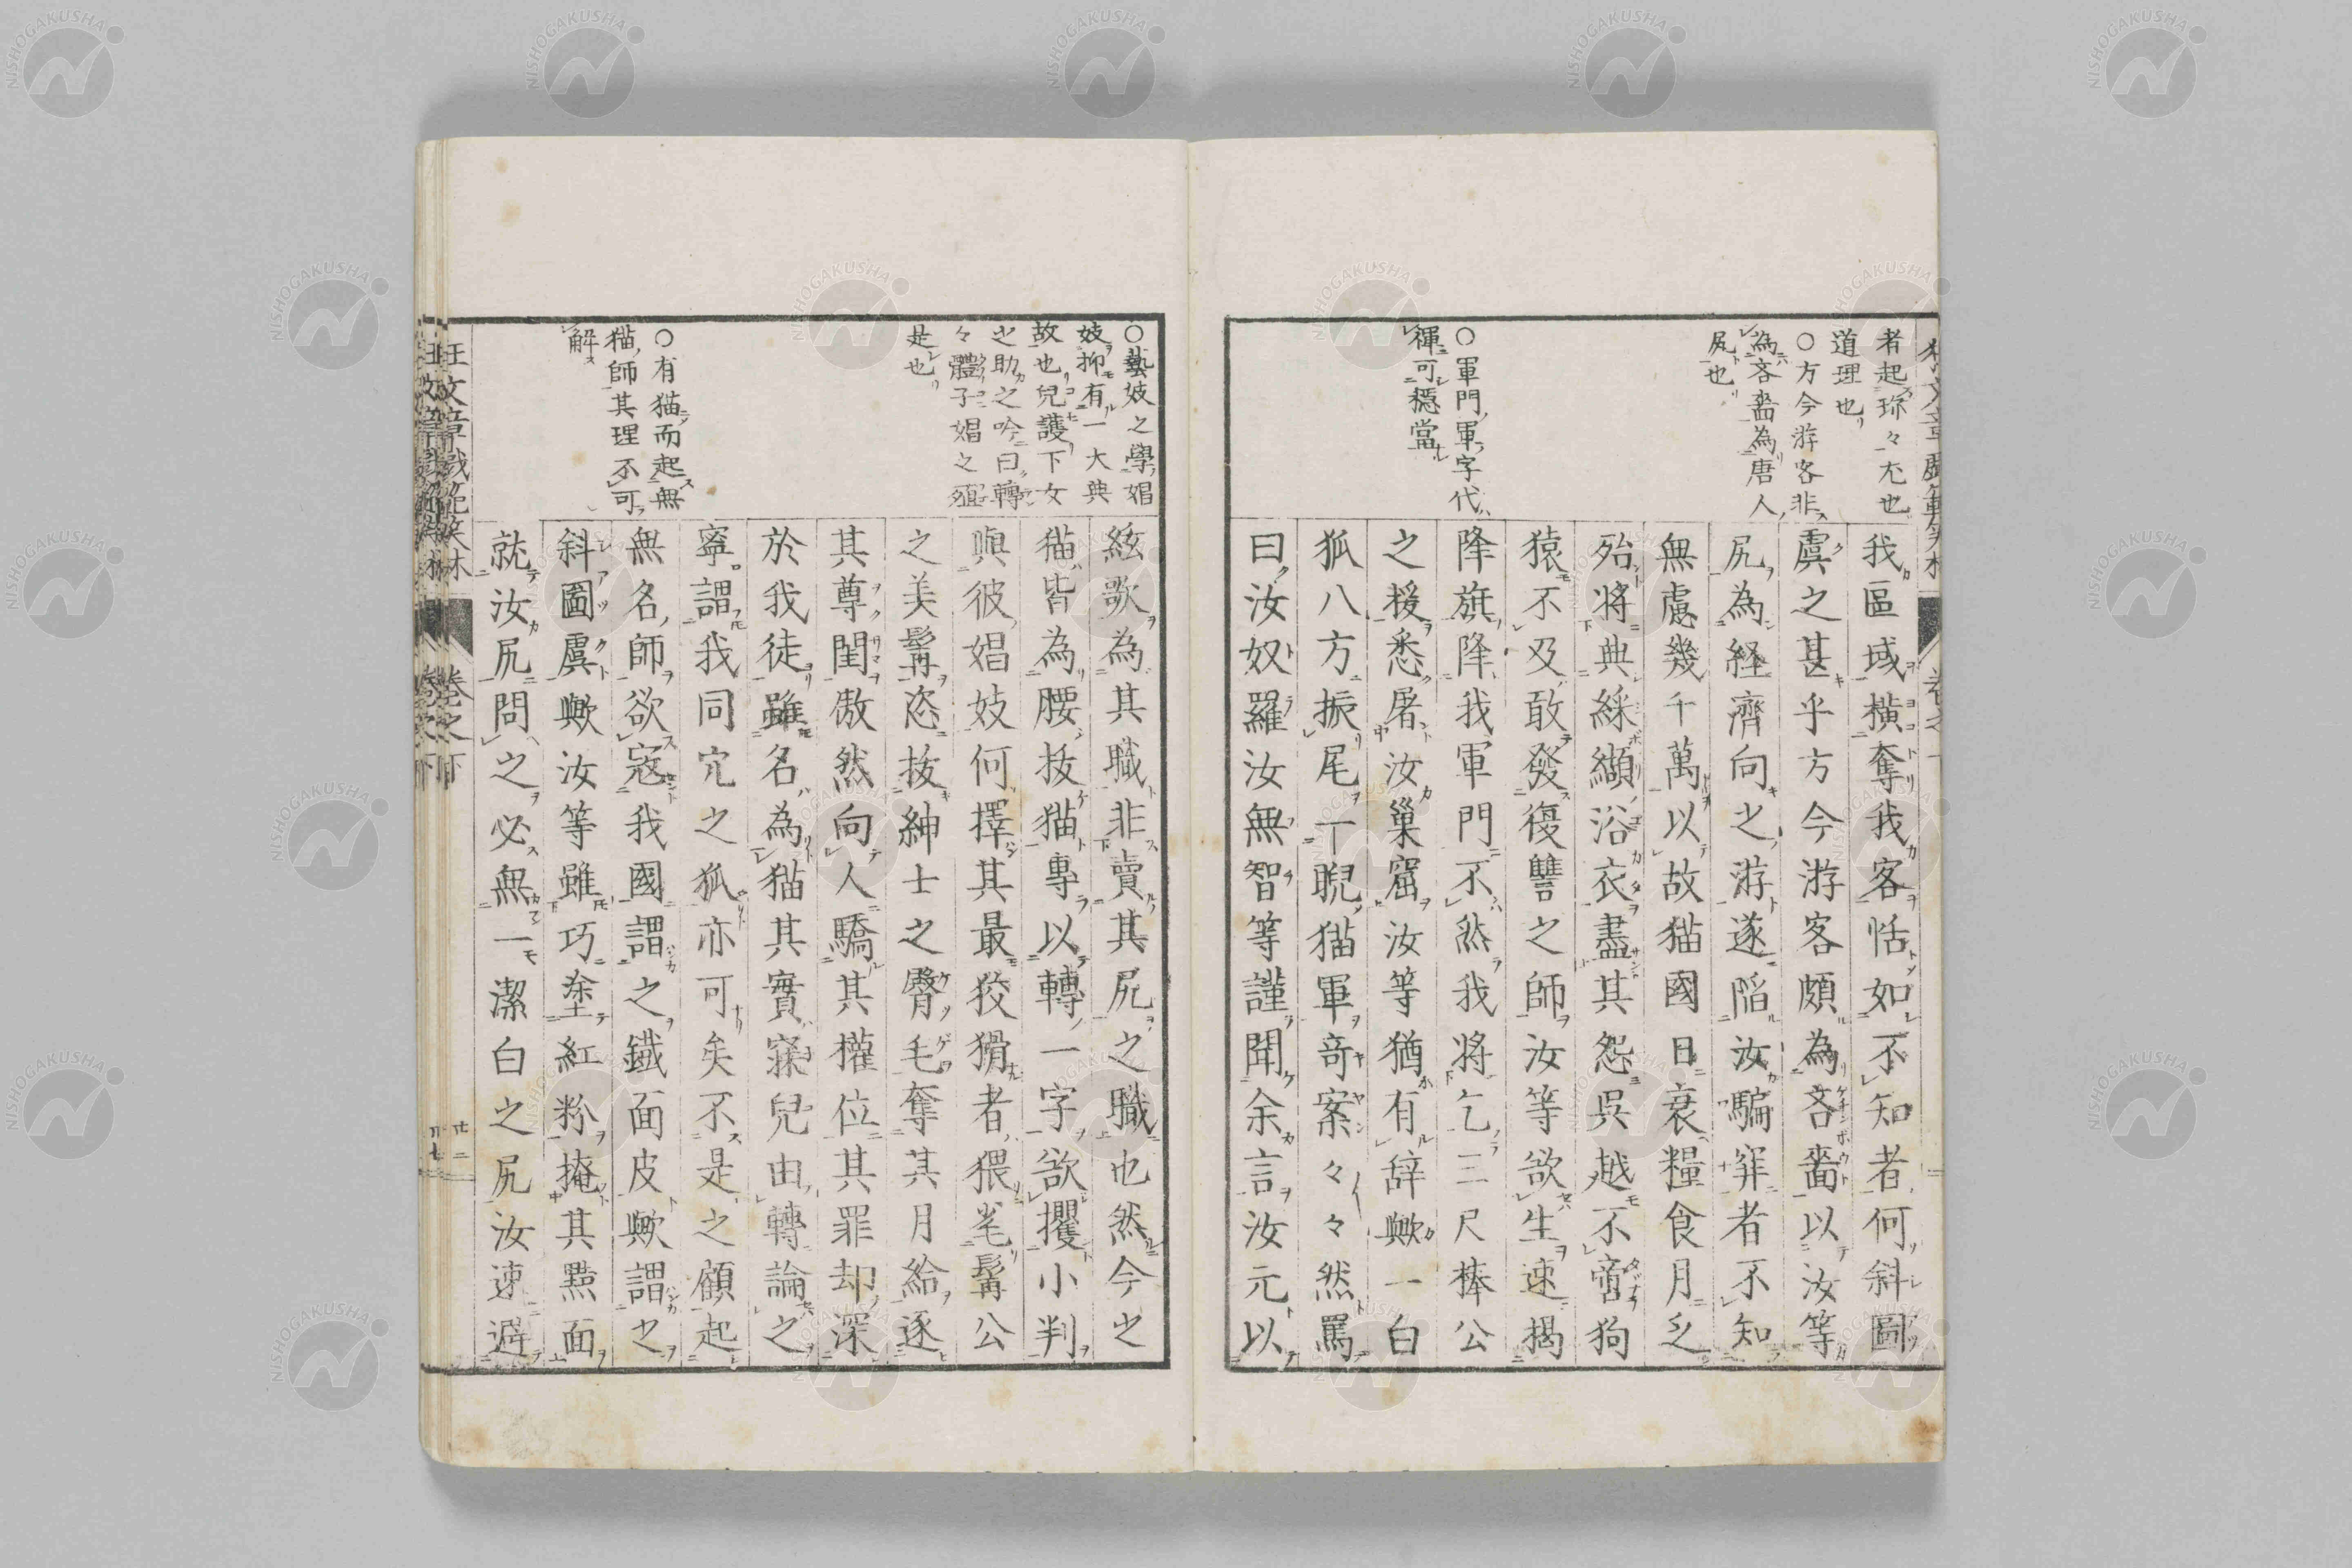 者起珎々尢也
道理也
○方今游客非
為吝嗇為唐人
尻也
○軍門軍字代
褌可穩當
我區域橫奪我客恬如不知者何斜圖
虞之甚乎方今游客頗為吝嗇以汝等
尻為経濟向之游遂陷汝騙穽者不知
無慮幾千萬以故猫國日衰糧食月乏
殆將典綵纈浴衣盡其怨吳越不啻狗
猿不及敢發復讐之師汝等欲生速揭
降旗降我軍門不然我將乞三尺棒公
之援悉屠汝巢窟汝等猶有辞歟一白
狐八方振尾一睨猫軍竒案々々然罵
曰汝奴羅汝無智等謹聞余言汝元以
○藝妓之學娼
妓抑有一大典
故也兒護下女
之助之吟曰轉
々體子娼之殖
是也
○有猫而起無
猫師其理不可
解
絃歌為其職非賣其尻之職也然今之
猫皆為腰抜猫專以轉一字欲攫小判
嗔彼娼妓何擇其最狡猾者猥毟髯公
之美髯恣抜紳士之臀毛奪其月給逐
其尊閨傲然向人驕其權位其罪却深
於我徒雖名為猫其實寐兒由轉論之
寧謂我同穴之狐亦可矣不是之顧起
無名師欲寇我國謂之鐵面皮歟謂之
斜圖虞歟汝等雖巧塗紅粉掩其黠面
就汝尻問之必無一潔白之尻汝速避
狂文章戯範笑林
卷之下
廿二
NISHOGAKUSHA